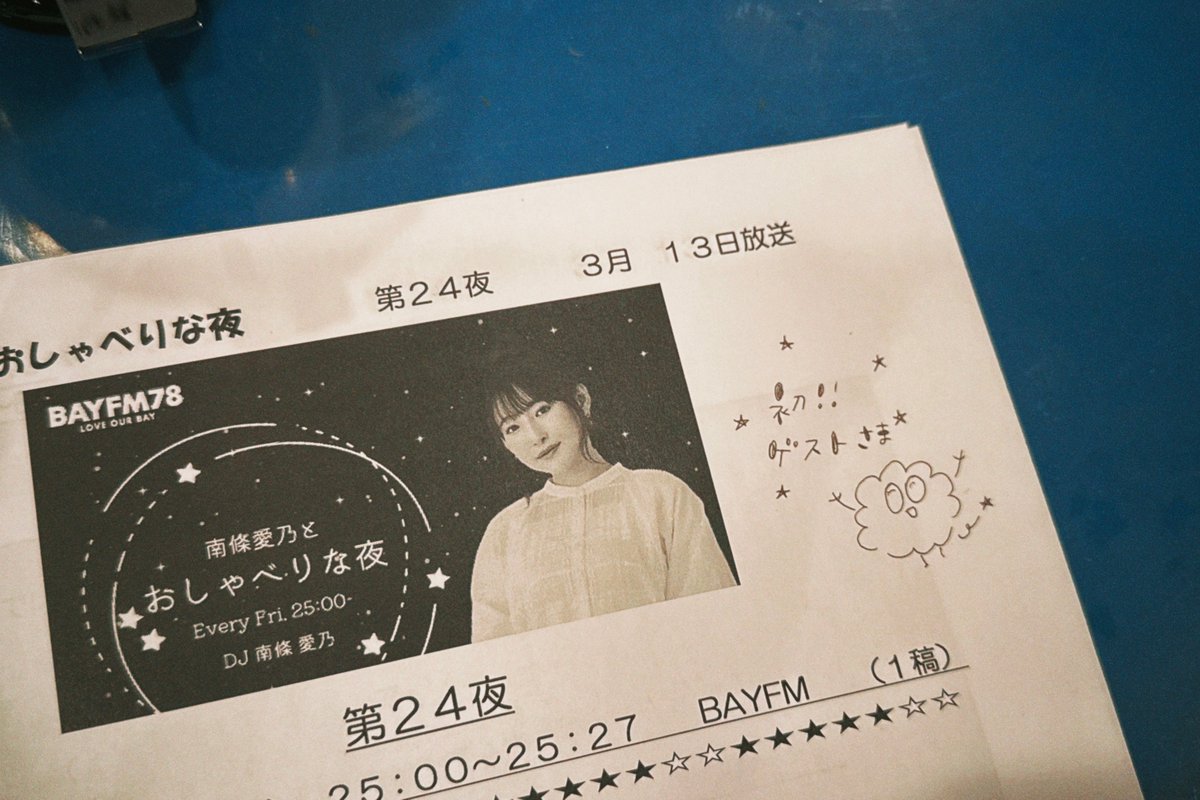 おしゃべりな夜 第24夜 3月 13日放送
BAYFM78
LOVE OUR BAY
南條愛乃と
おしゃべりな夜
Every Fri. 25:00-
DJ 南條 愛乃
初!!
ゲストさま
第24夜
25:00～25:27 BAYFM (1稿)
★★★★★☆☆★★★★★☆☆